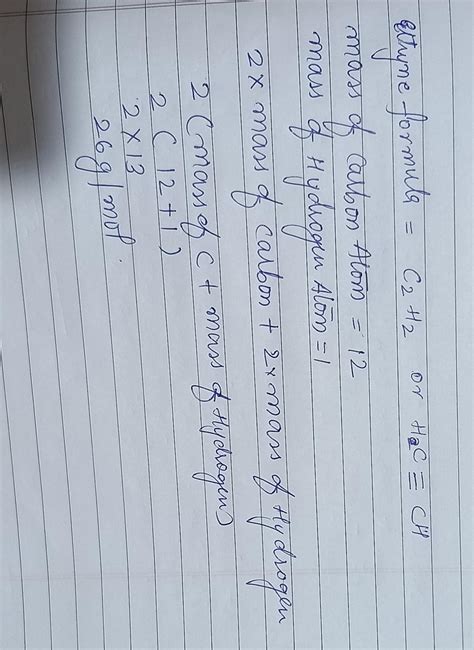 ethyne formula = C2H2 or HC ≡ CH
mass of Carbon Atom = 12
mass of Hydrogen Atom = 1
2 x mass of carbon + 2 x mass of Hydrogen
2 (mass of C + mass of Hydrogen)
2 (12 + 1)
2 x 13
26g/mol.